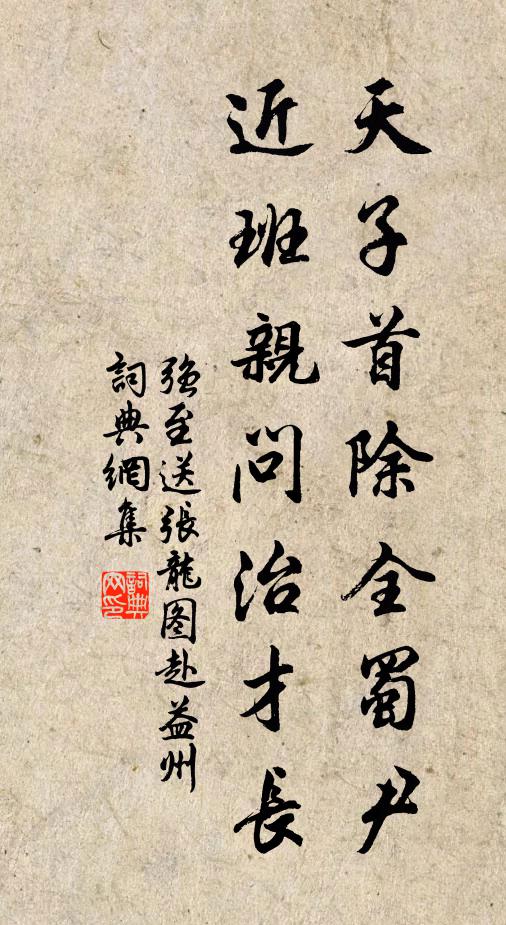 天子首除全蜀尹
近班親問治才長
強至送張龍图赴益州
詞典網集
詞典
网印